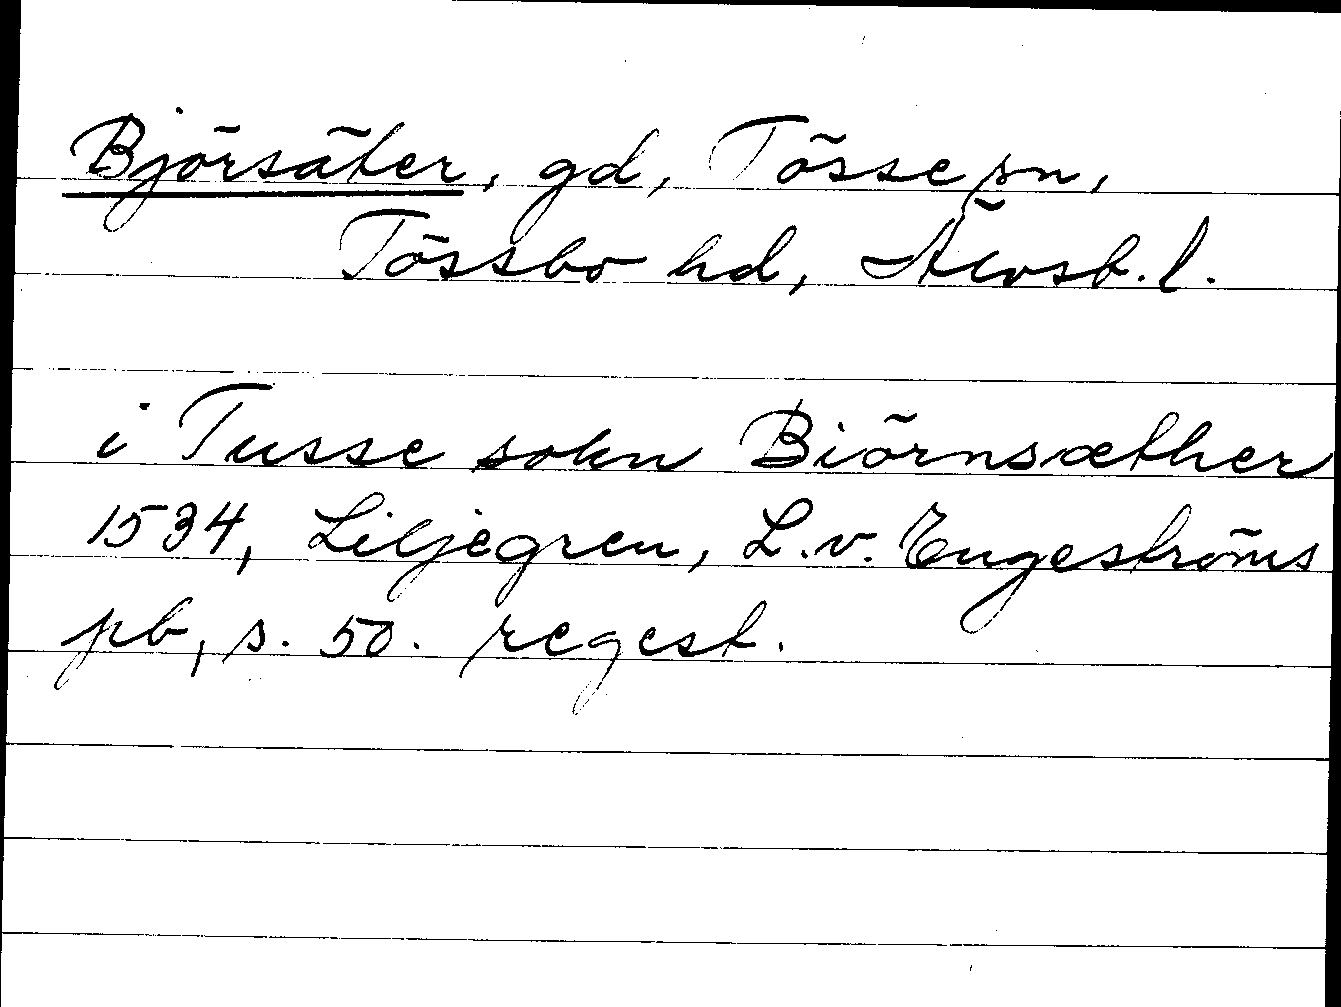 Björsäter, gd, Tösse sn,
Tössbo hd, Älvsb. l.
i Tusse sokn Biörnsæther
1534, Liljegren, L.v. Engeströms
pb, s. 50. regest.